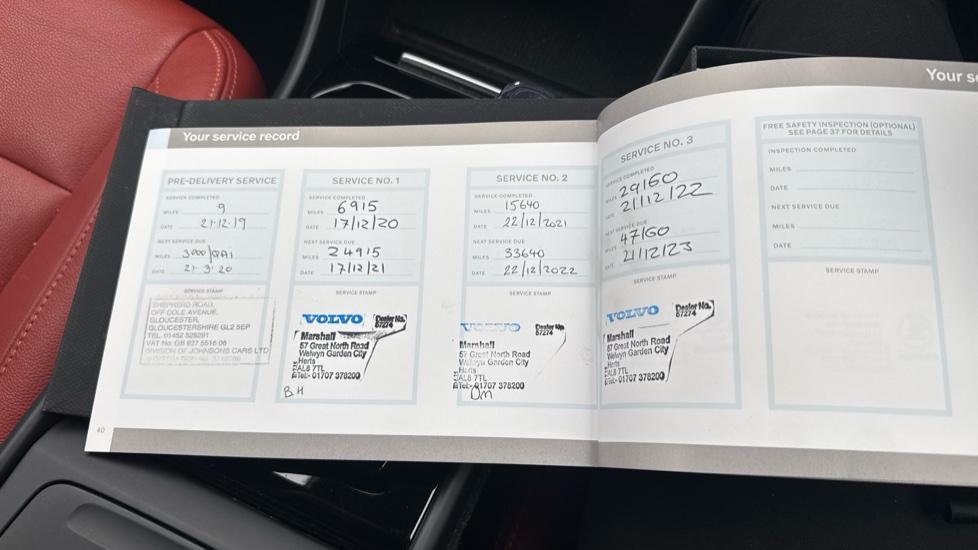 Your service record
PRE-DELIVERY SERVICE
SERVICE COMPLETED
MILES 9
DATE 21·12·19
NEXT SERVICE DUE
MILES 3000/
DATE 21·3·20
SERVICE STAMP
SHEPHERD ROAD,
OFF COLE AVENUE,
GLOUCESTER,
GLOUCESTERSHIRE GL2 5EP
TEL: 01452 525291
VAT No: GB 827 5516 06
DIVISION OF JOHNSONS CARS LTD
40
SERVICE NO. 1
SERVICE COMPLETED
MILES 6915
DATE 17/12/20
NEXT SERVICE DUE
MILES 24915
DATE 17/12/21
SERVICE STAMP
VOLVO Dealer No.
67274
Marshall
57 Great North Road
Welwyn Garden City
Herts
AL8 7TL
Tel:- 01707 378200
B.H
SERVICE NO. 2
SERVICE COMPLETED
MILES 15640
DATE 22/12/2021
NEXT SERVICE DUE
MILES 33640
DATE 22/12/2022
SERVICE STAMP
VOLVO Dealer No.
67274
Marshall
57 Great North Road
Welwyn Garden City
Herts
AL8 7TL
Tel:- 01707 378200
DM
Your
SERVICE NO. 3
SERVICE COMPLETED
MILES 29160
DATE 21/12/22
NEXT SERVICE DUE
MILES 47160
DATE 21/12/23
SERVICE STAMP
VOLVO Dealer No.
67274
Marshall
57 Great North Road
Welwyn Garden City
Herts
AL8 7TL
Tel:- 01707 378200
FREE SAFETY INSPECTION (OPTIONAL)
SEE PAGE 37 FOR DETAILS
INSPECTION COMPLETED
MILES
DATE
NEXT SERVICE DUE
MILES
DATE
SERVICE STAMP